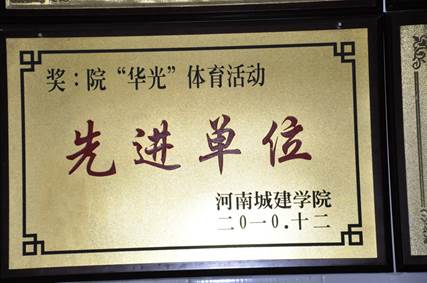 奖：院“华光”体育活动
先进单位
河南城建学院
二〇一〇.十二